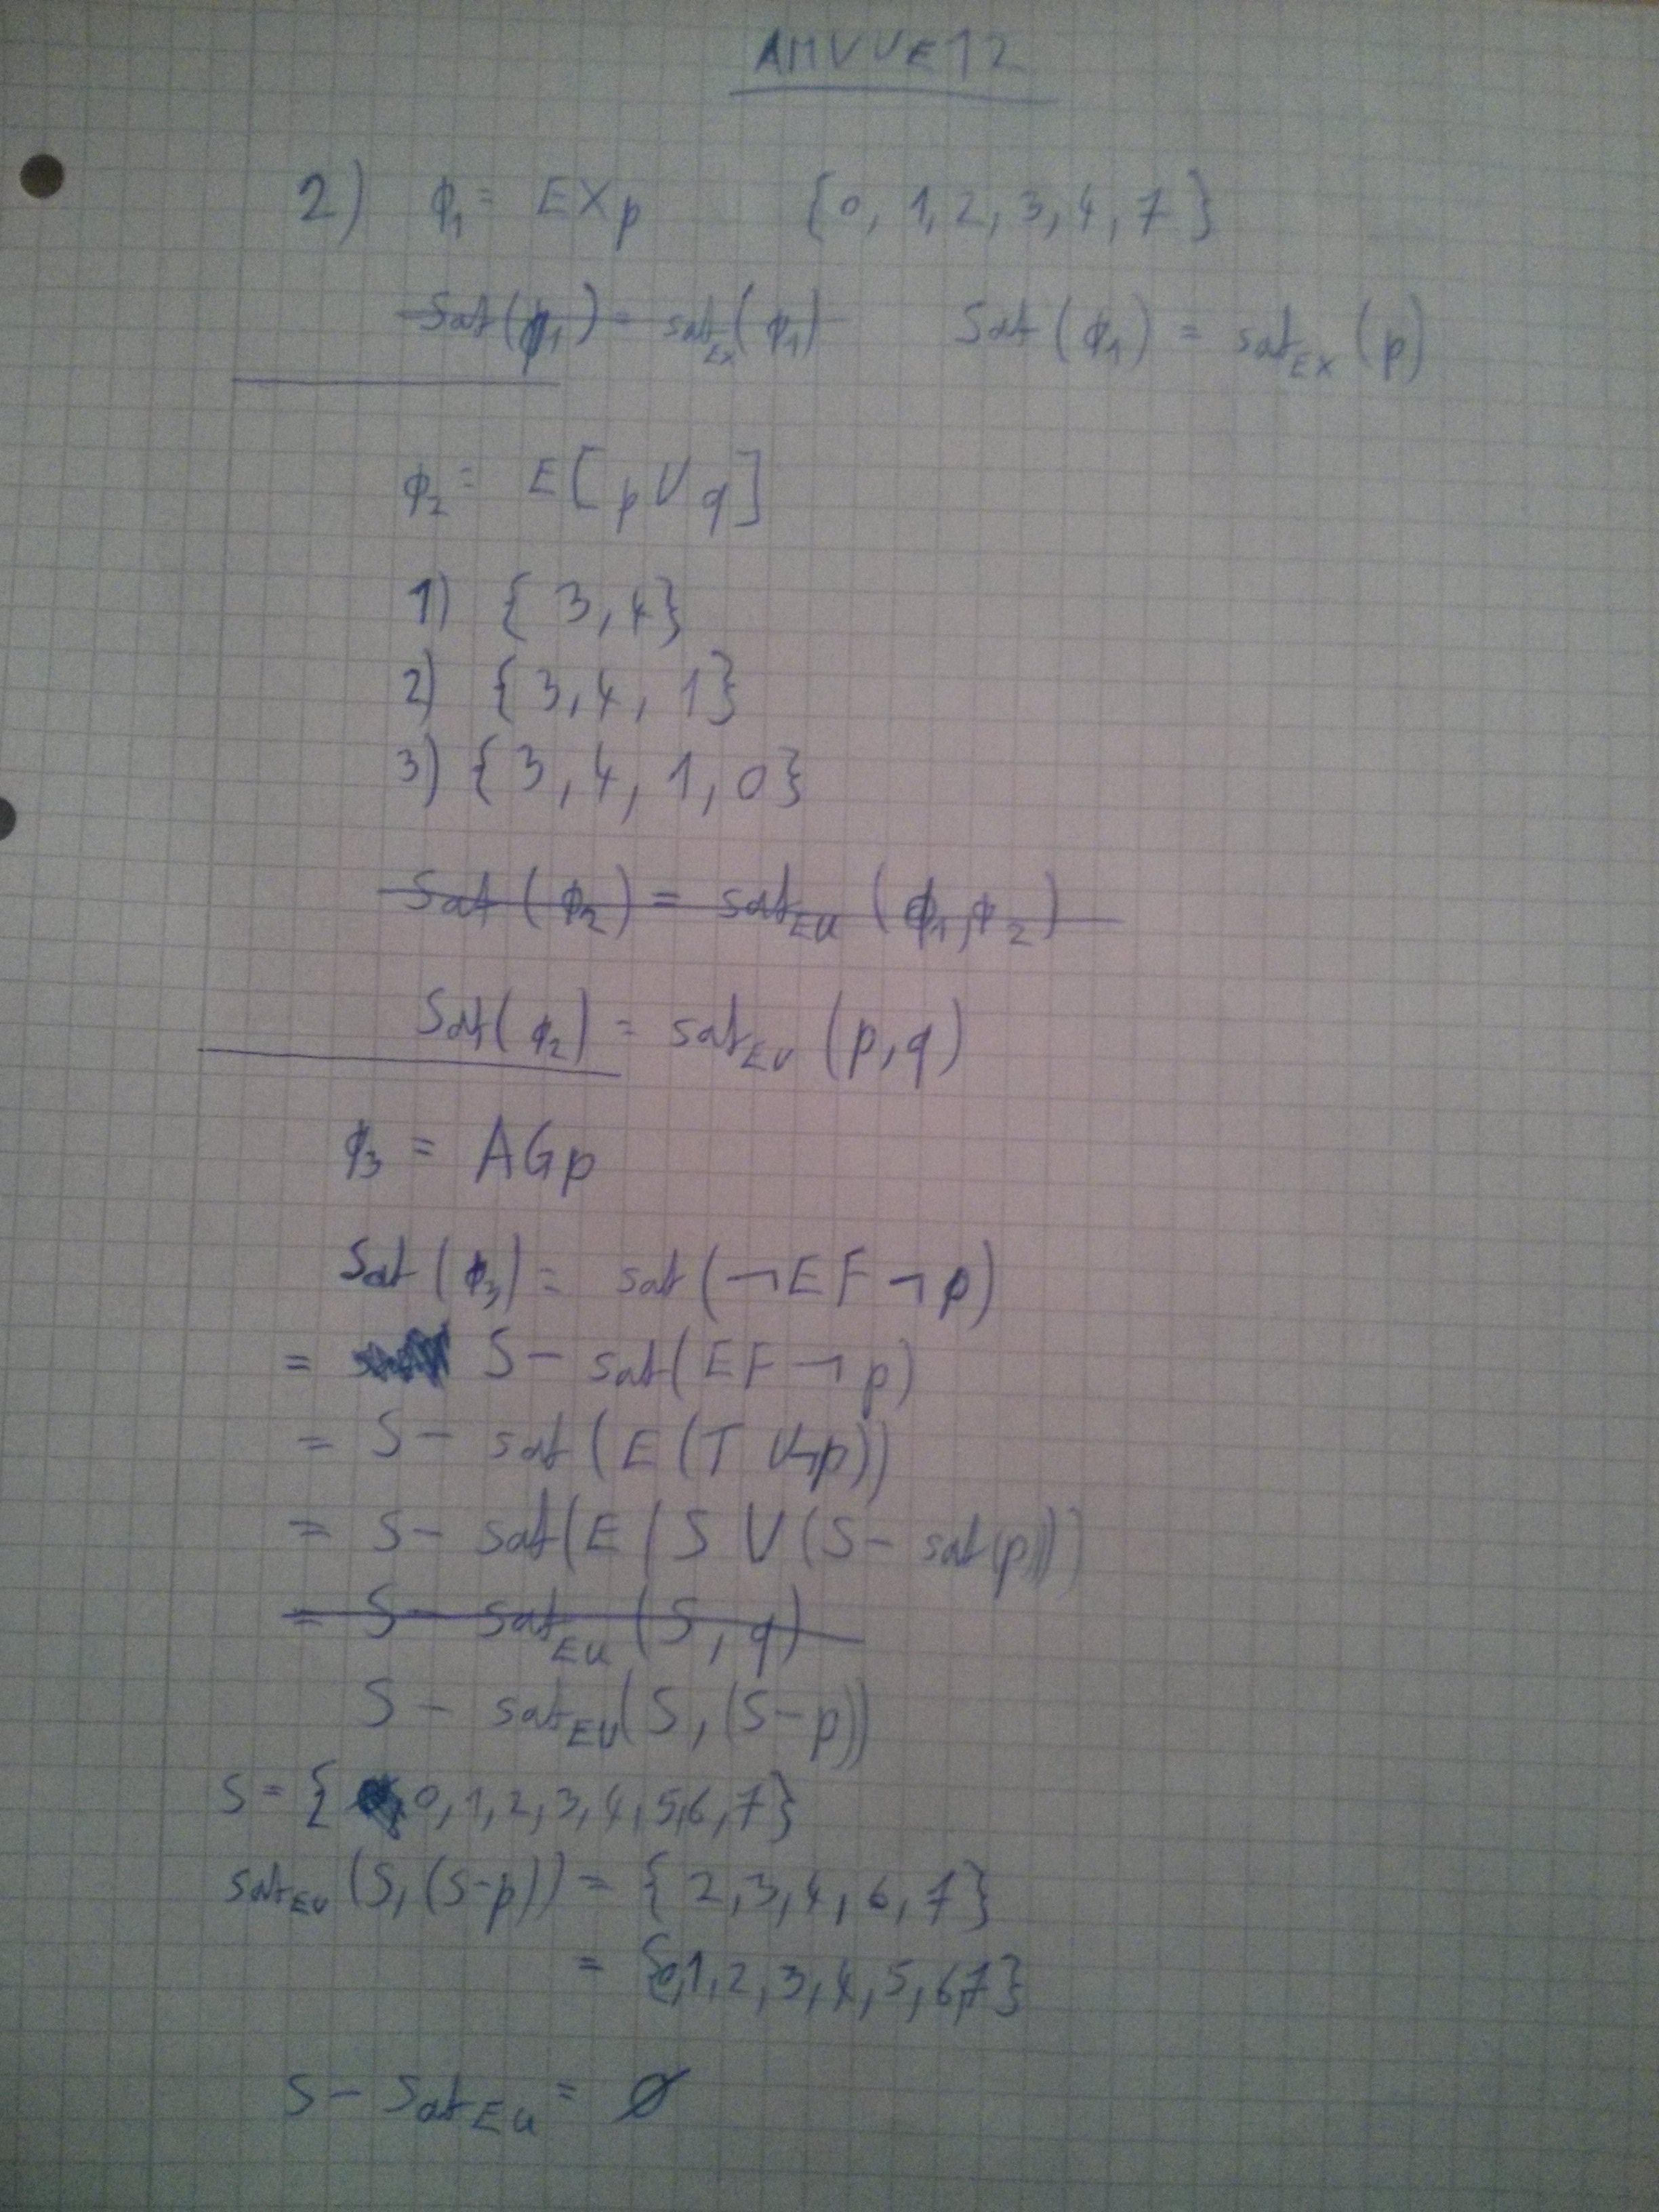 AMVUE12
2) ϕ₁ = EXp {0, 1, 2, 3, 4, 7}
Sat(ϕ₁) = sat_EX(ϕ₁) Sat(ϕ₁) = sat_EX(p)
ϕ₂ = E[p U q]
1) {3, 4}
2) {3, 4, 1}
3) {3, 4, 1, 0}
Sat(ϕ₂) = sat_EU(ϕ₁, ϕ₂)
Sat(ϕ₂) = sat_EU(p, q)
ϕ₃ = AGp
Sat(ϕ₃) = sat(¬EF¬p)
= S − sat(EF¬p)
= S − sat(E(T U¬p))
= S − sat(E(S U (S − sat(p)))
= S − sat_EU(S, q)
S − sat_EU(S, (S−p))
S = {0, 1, 2, 3, 4, 5, 6, 7}
sat_EU(S, (S−p)) = {2, 3, 4, 6, 7}
= {0, 1, 2, 3, 4, 5, 6, 7}
S − Sat_EU = Ø